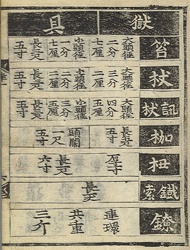 獄具
笞 大頭徑二分七厘 小頭徑一分七厘 長三尺五寸
杖 大頭徑三分二厘 小頭徑二分二厘 長三尺五寸
訊杖 大頭徑四分五厘 小頭徑三分五厘 長三尺五寸
枷 長五尺五寸 頭闊一尺五寸
杻 厚一寸 長一尺六寸
鐵索 長一丈
鐐 連環共重三斤